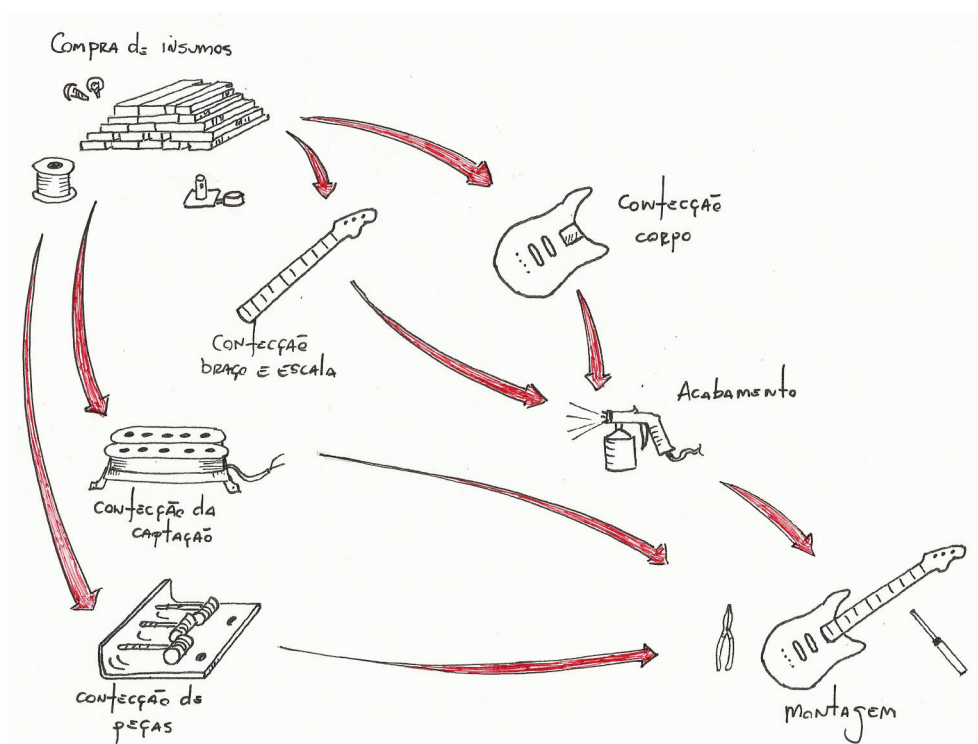 Compra de insumos
Confecção
corpo
Confecção
braço e escala
Acabamento
Confecção da
captação
Confecção de
peças
montagem